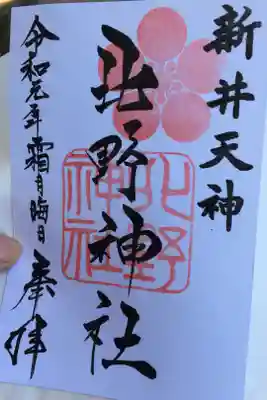 新井天神
北野神社
北野
神社
令和元年霜月晦日
奉拝